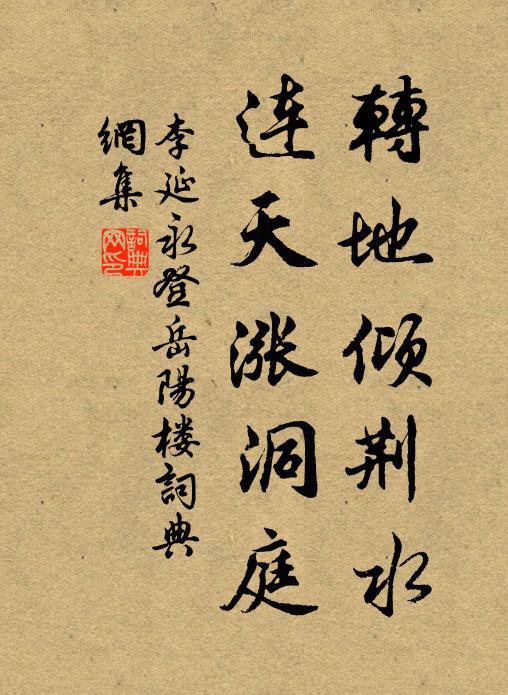 轉地傾荆水
连天漲洞庭
李延永登岳陽楼詞典
網集
詞典
网印